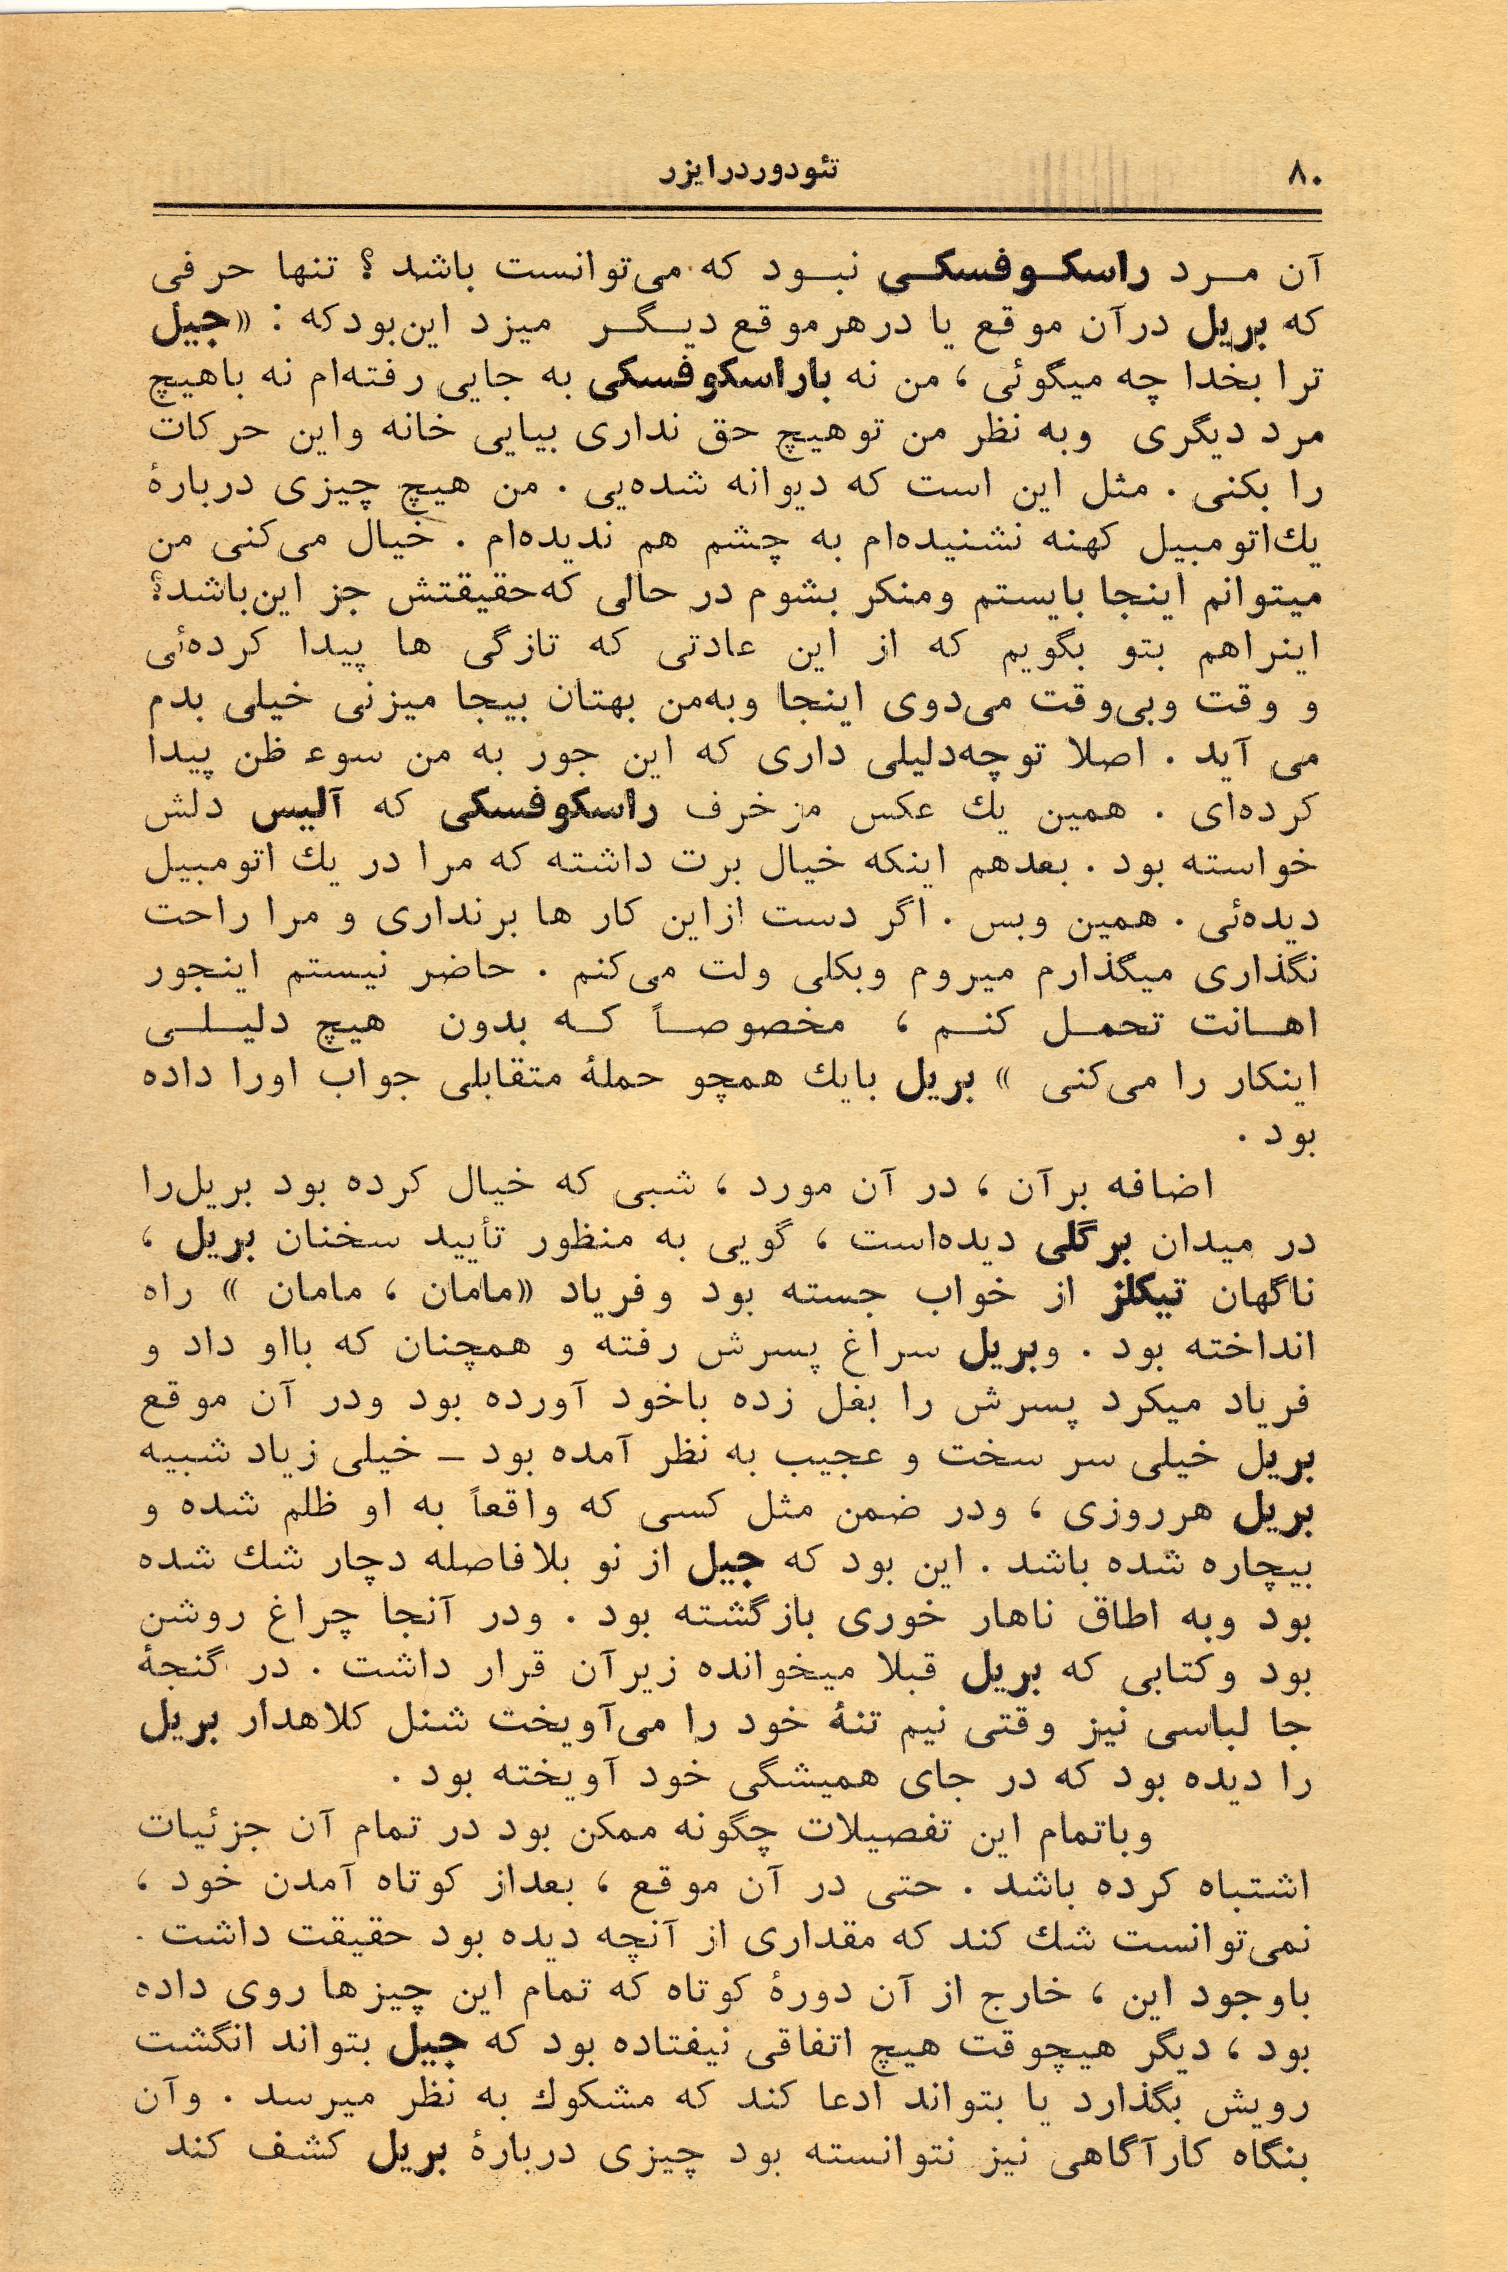 ۸۰
تئودور درایزر
آن مرد راسکوفسکی نبود که می‌توانست باشد ؟ تنها حرفی
که بریل درآن موقع یا درهرموقع دیگر میزد این‌بودکه : «جیل
ترا بخدا چه میگوئی ، من نه باراسکوفسکی به جایی رفته‌ام نه باهیچ
مرد دیگری وبه نظر من توهیچ حق نداری بیایی خانه واین حرکات
را بکنی . مثل این است که دیوانه شده‌یی . من هیچ چیزی دربارهٔ
یك‌اتومبیل کهنه نشنیده‌ام به چشم هم ندیده‌ام . خیال می‌کنی من
میتوانم اینجا بایستم ومنکر بشوم در حالی که‌حقیقتش جز این‌باشد؟
اینراهم بتو بگویم که از این عادتی که تازگی ها پیدا کرده‌ئی
و وقت وبی‌وقت می‌دوی اینجا وبه‌من بهتان بیجا میزنی خیلی بدم
می آید . اصلا توچه‌دلیلی داری که این جور به من سوء ظن پیدا
کرده‌ای . همین یك عکس مزخرف راسکوفسکی که آلیس دلش
خواسته بود . بعدهم اینکه خیال برت داشته که مرا در یك اتومبیل
دیده‌ئی . همین وبس . اگر دست ازاین کار ها برنداری و مرا راحت
نگذاری میگذارم میروم وبکلی ولت می‌کنم . حاضر نیستم اینجور
اهانت تحمل کنم ، مخصوصاً که بدون هیچ دلیلی
اینکار را می‌کنی » بریل بایك همچو حملهٔ متقابلی جواب اورا داده
بود .
اضافه برآن ، در آن مورد ، شبی که خیال کرده بود بریل‌را
در میدان برگلی دیده‌است ، گویی به منظور تأیید سخنان بریل ،
ناگهان تیکلز از خواب جسته بود وفریاد «مامان ، مامان » راه
انداخته بود . وبریل سراغ پسرش رفته و همچنان که بااو داد و
فریاد میکرد پسرش را بغل زده باخود آورده بود ودر آن موقع
بریل خیلی سر سخت و عجیب به نظر آمده بود ـ خیلی زیاد شبیه
بریل هرروزی ، ودر ضمن مثل کسی که واقعاً به او ظلم شده و
بیچاره شده باشد . این بود که جیل از نو بلافاصله دچار شك شده
بود وبه اطاق ناهار خوری بازگشته بود . ودر آنجا چراغ روشن
بود وکتابی که بریل قبلا میخوانده زیرآن قرار داشت . در گنجهٔ
جا لباسی نیز وقتی نیم تنهٔ خود را می‌آویخت شنل کلاهدار بریل
را دیده بود که در جای همیشگی خود آویخته بود .
وباتمام این تفصیلات چگونه ممکن بود در تمام آن جزئیات
اشتباه کرده باشد . حتی در آن موقع ، بعداز کوتاه آمدن خود ،
نمی‌توانست شك کند که مقداری از آنچه دیده بود حقیقت داشت .
باوجود این ، خارج از آن دورهٔ کوتاه که تمام این چیزها روی داده
بود ، دیگر هیچوقت هیچ اتفاقی نیفتاده بود که جیل بتواند انگشت
رویش بگذارد یا بتواند ادعا کند که مشکوك به نظر میرسد . وآن
بنگاه کارآگاهی نیز نتوانسته بود چیزی دربارهٔ بریل کشف کند